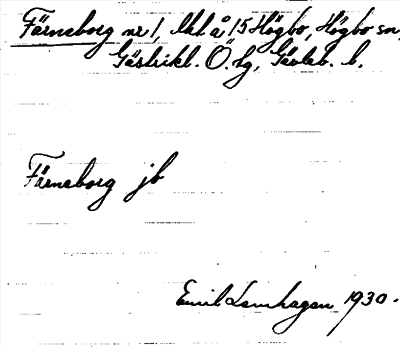 Färneborg nr 1, lht å 15 Högbo, Högbo sn,
Gästrikl. Ö. hg, Gävleb. l.
Färneborg jb
Emil Lennhagen 1930.